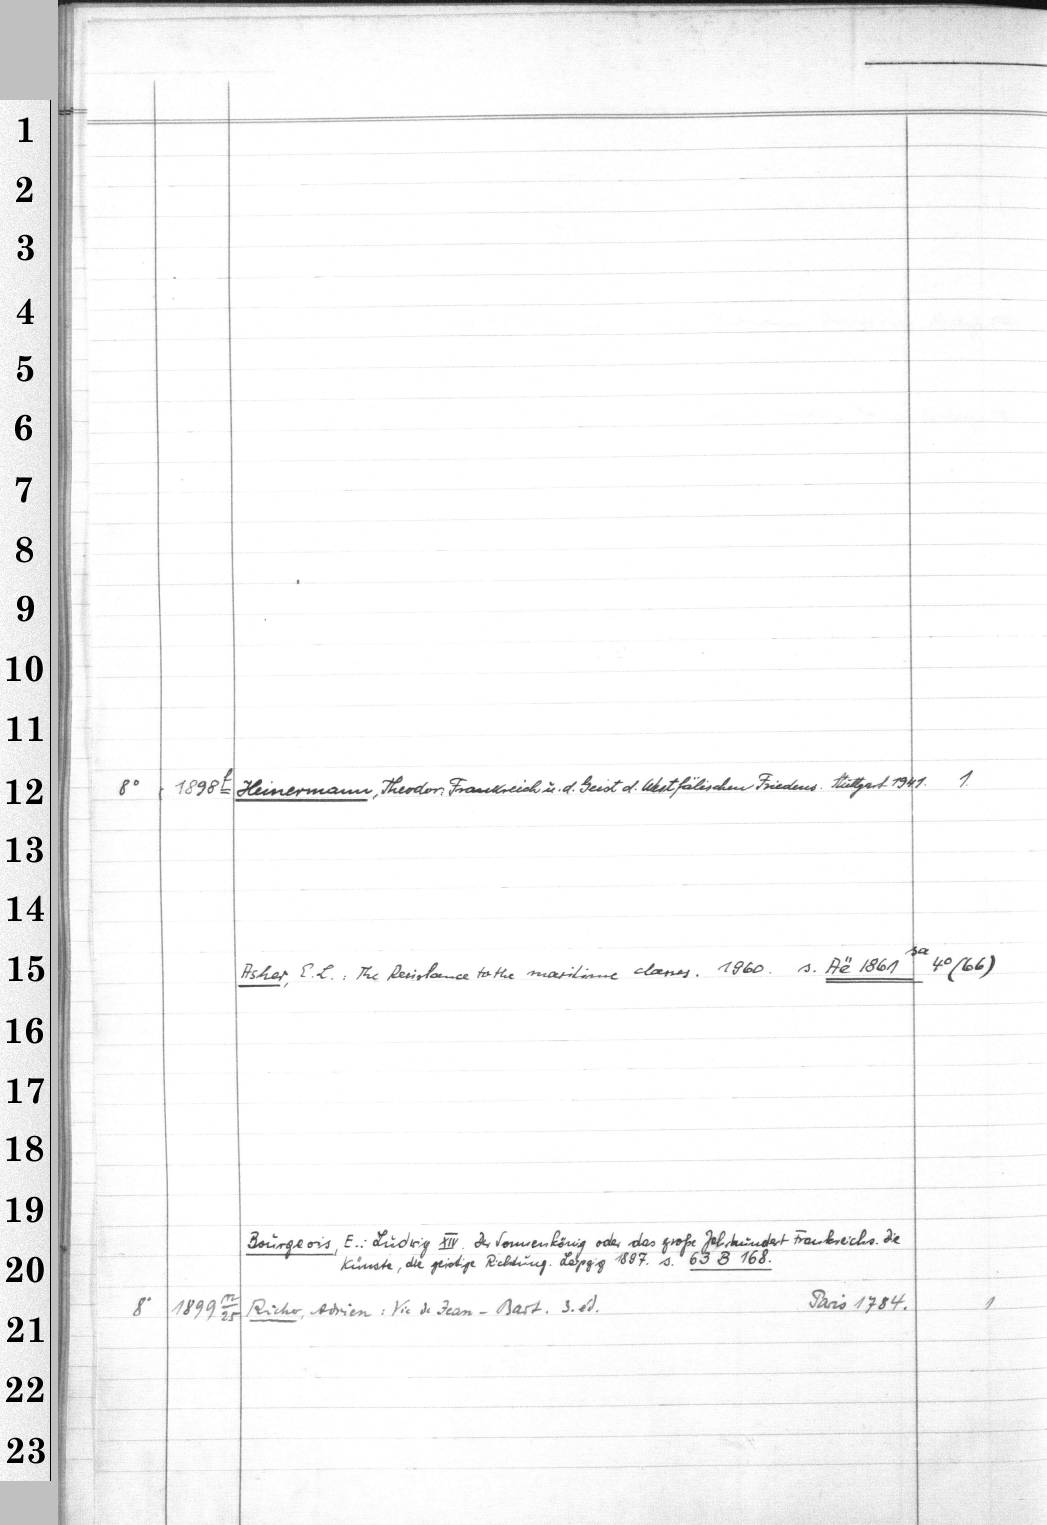 1
2
3
4
5
6
7
8
9
10
11
12
8° 1898 f Heinermann, Theodor: Frankreich u. d. Geist d. Westfälischen Friedens. Stuttgart 1941. 1.
13
14
15
Asher, E. L.: The Resistance to the maritime classes. 1960. s. Aë 1861 sa 4° (66)
16
17
18
19
Bourgeois, E.: Ludwig XIV. Der Sonnenkönig oder das große Jahrhundert Frankreichs. Die
20
Künste, die geistige Richtung. Leipzig 1897. s. 63 B 168.
8° 1899 m/25 Richer, Adrien: Vie de Jean-Bart. 3. éd. Paris 1784. 1
21
22
23